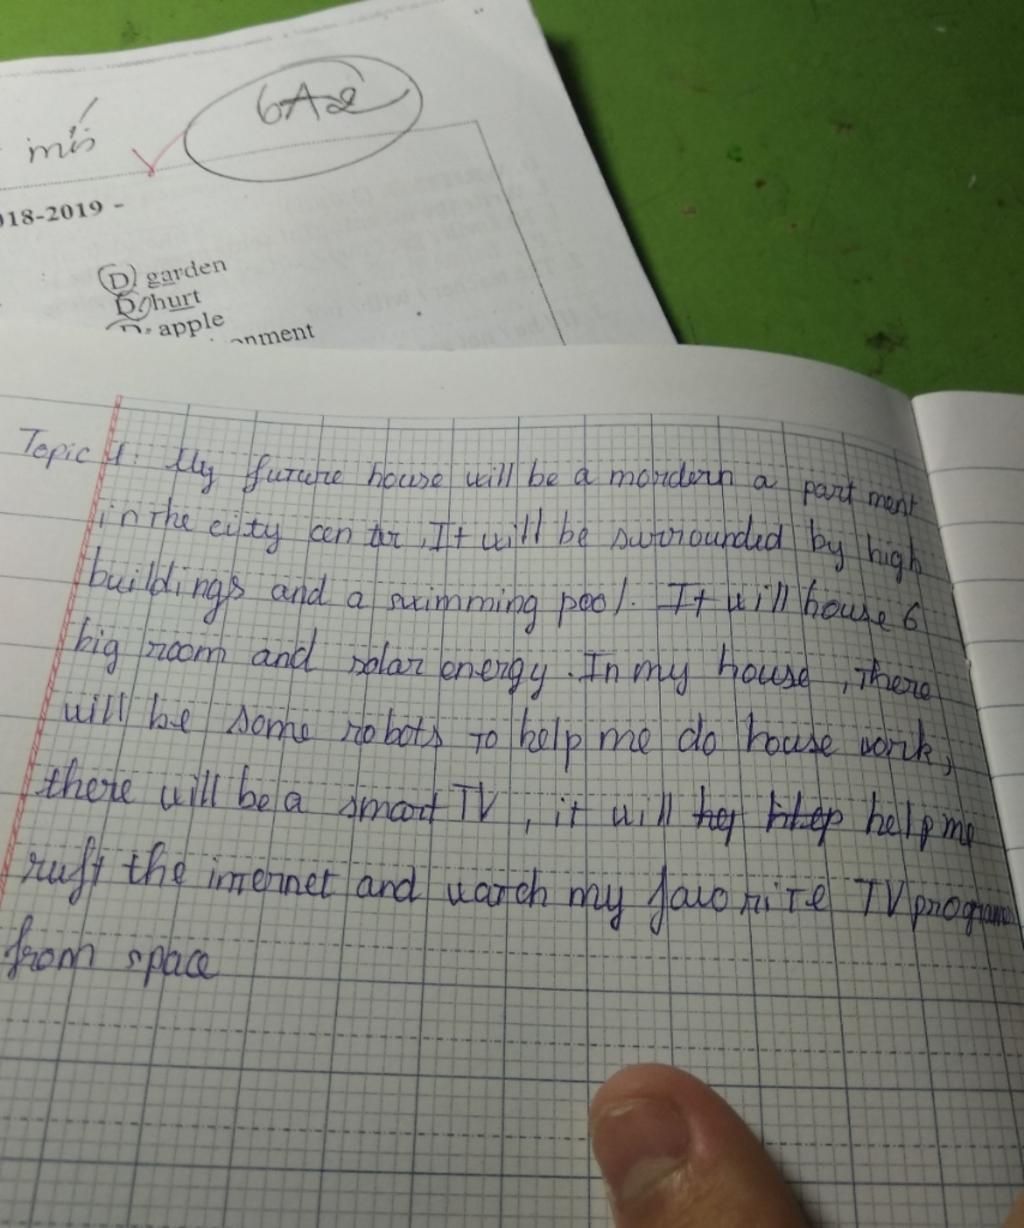 mis
6A2
018-2019 -
D garden
D. hurt
D. apple
onment
Topic 4: My future house will be a mordern a partment
in the city center. It will be surrounded by high
buildings and a swimming pool. It will house 6
big room and solar energy. In my house, there
will be some robots to help me do house work,
there will be a smart TV, it will help me
ruft the internet and watch my favorite TV programs
from space